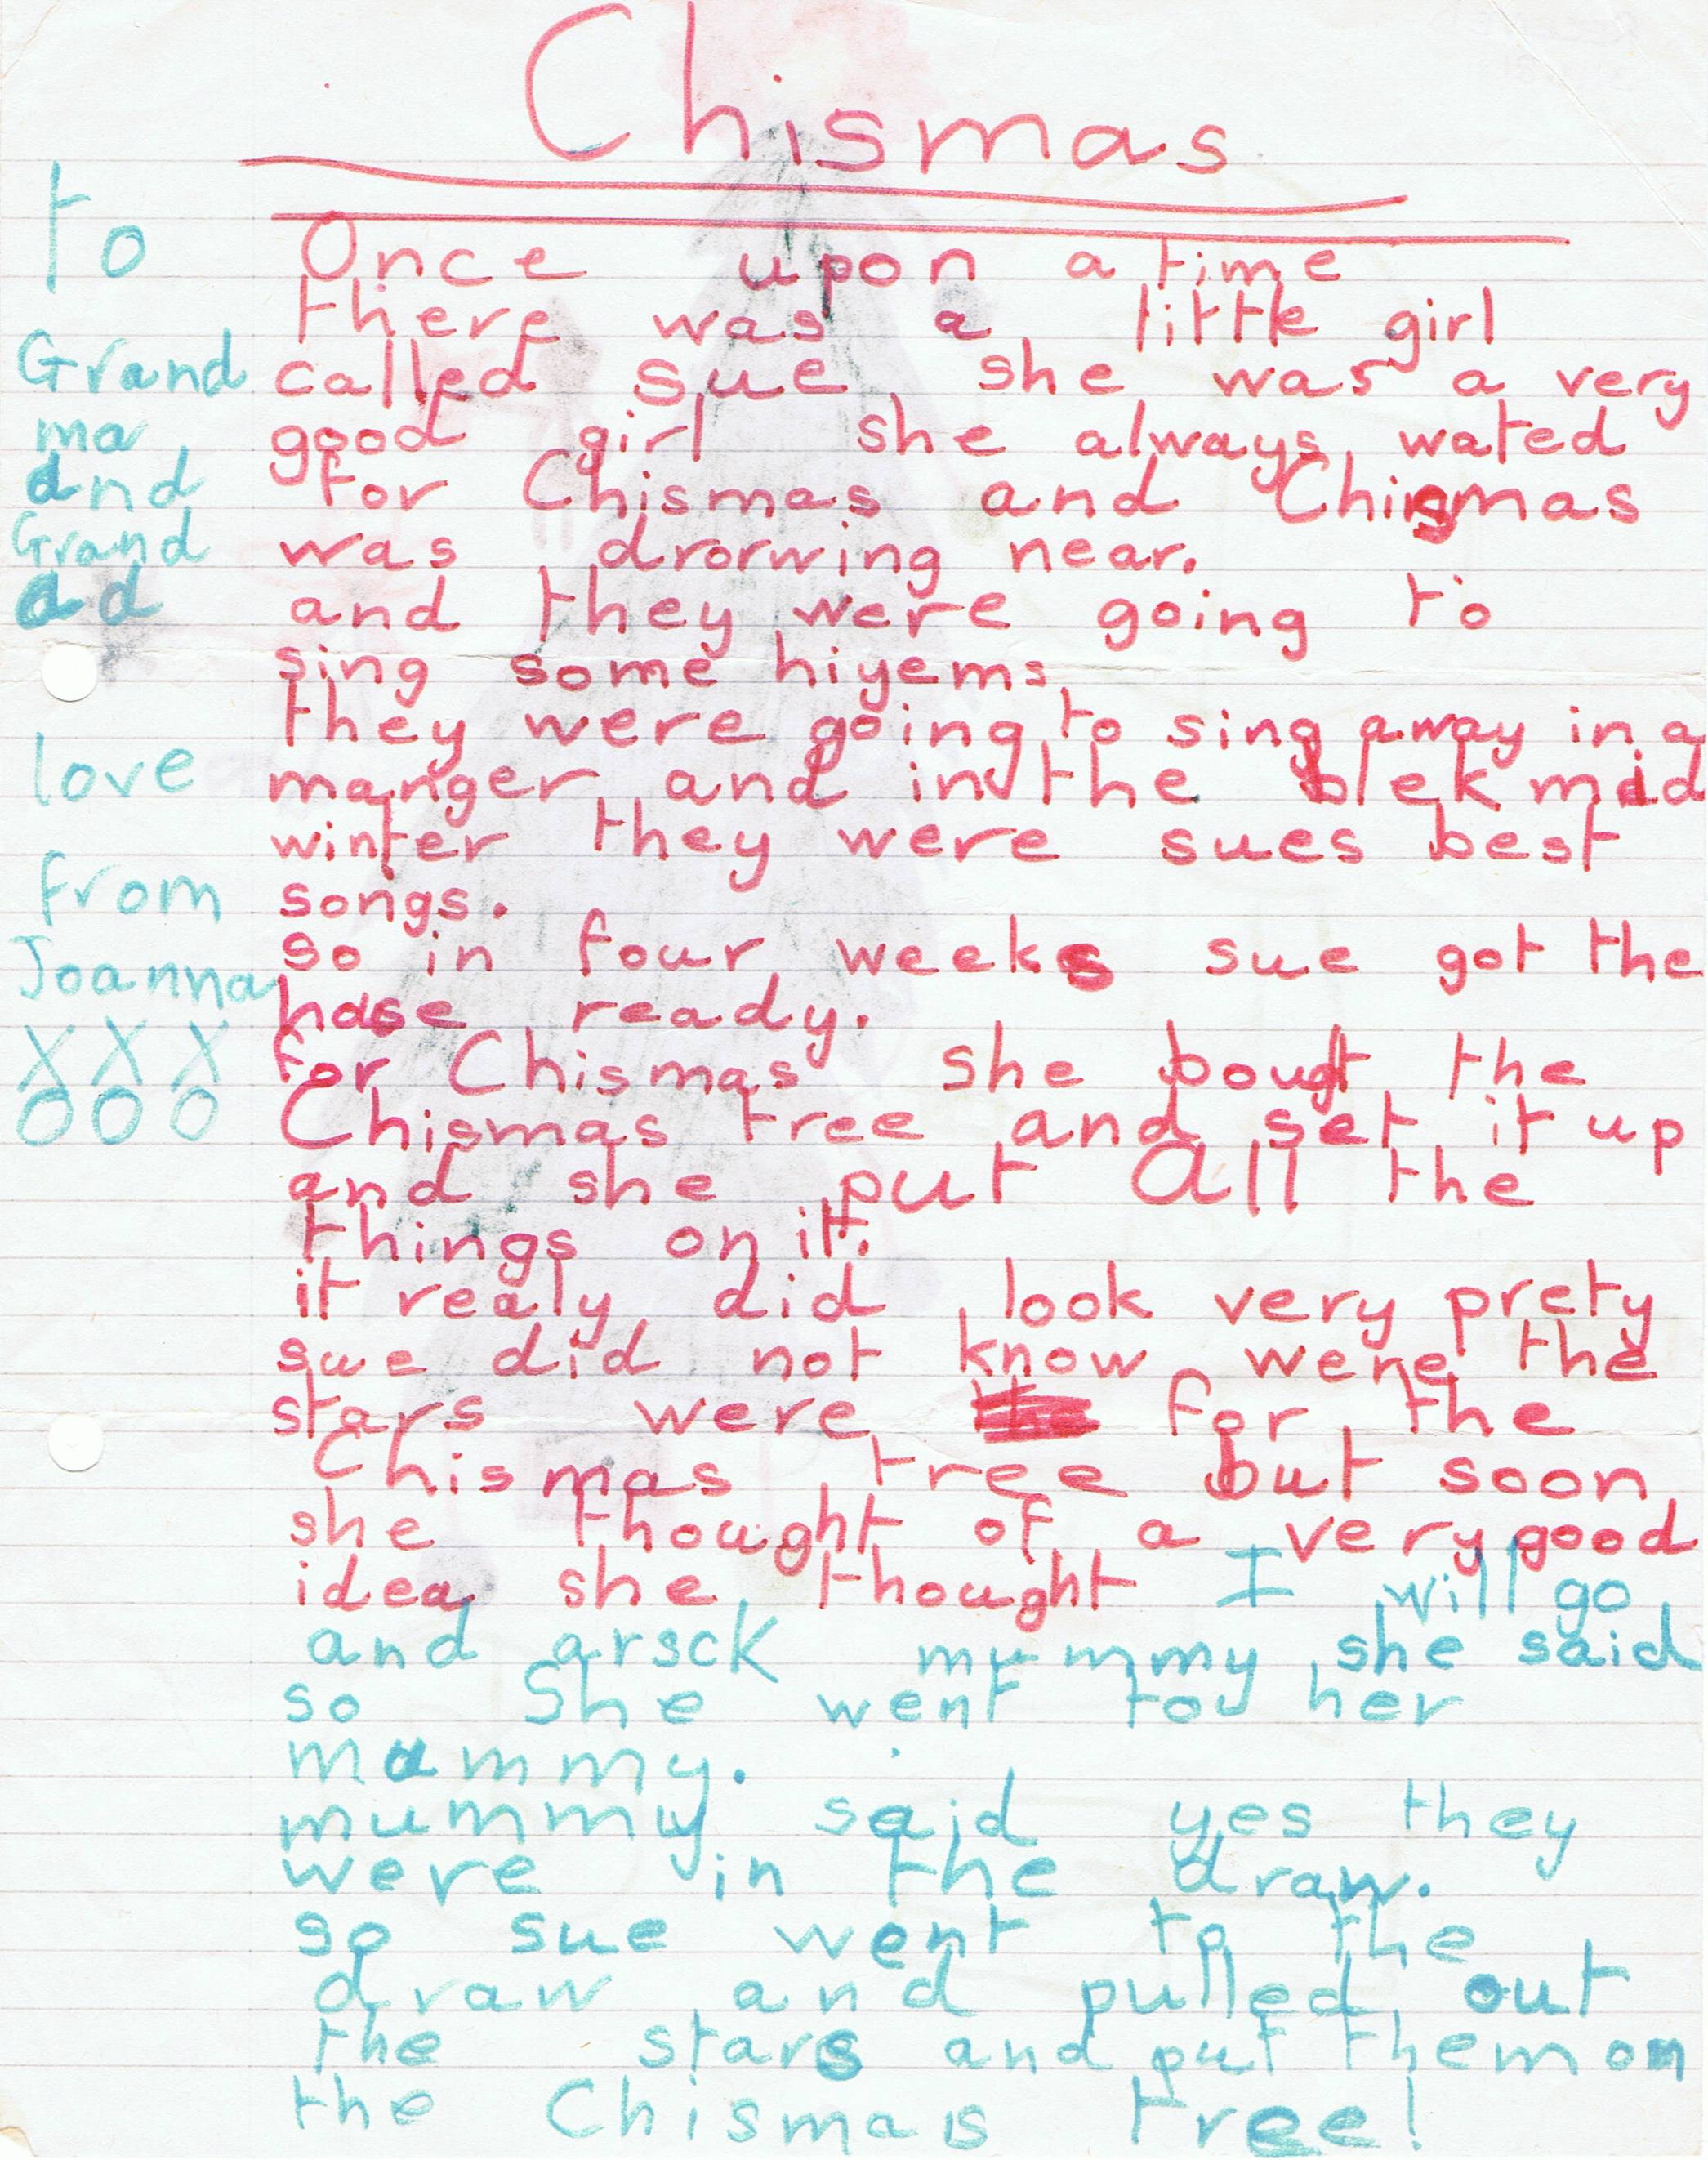 Chismas
to
Grand
ma
and
Grand
dad
love
from
Joanna
XXX
OOO
Once upon a time
there was a little girl
called sue she was a very
good girl she always wated
for Chismas and Chismas
was drorwing near.
and they were going to
sing some hiyems,
they were going to sing away in a
manger and in the blek mid
winter they were sues best
songs.
so in four weeks sue got the
hose ready.
for Chismas she bougt the
Chismas tree and set it up
and she put all the
things on it.
it realy did look very prety
sue did not know were the
stars were for the
Chismas tree but soon
she thought of a very good
idea she thought I will go
and arsck mummy she said
so She went to her
mummy.
mummy said yes they
were in the draw.
so sue went to the
draw and pulled out
the stars and put them on
the Chismas tree!